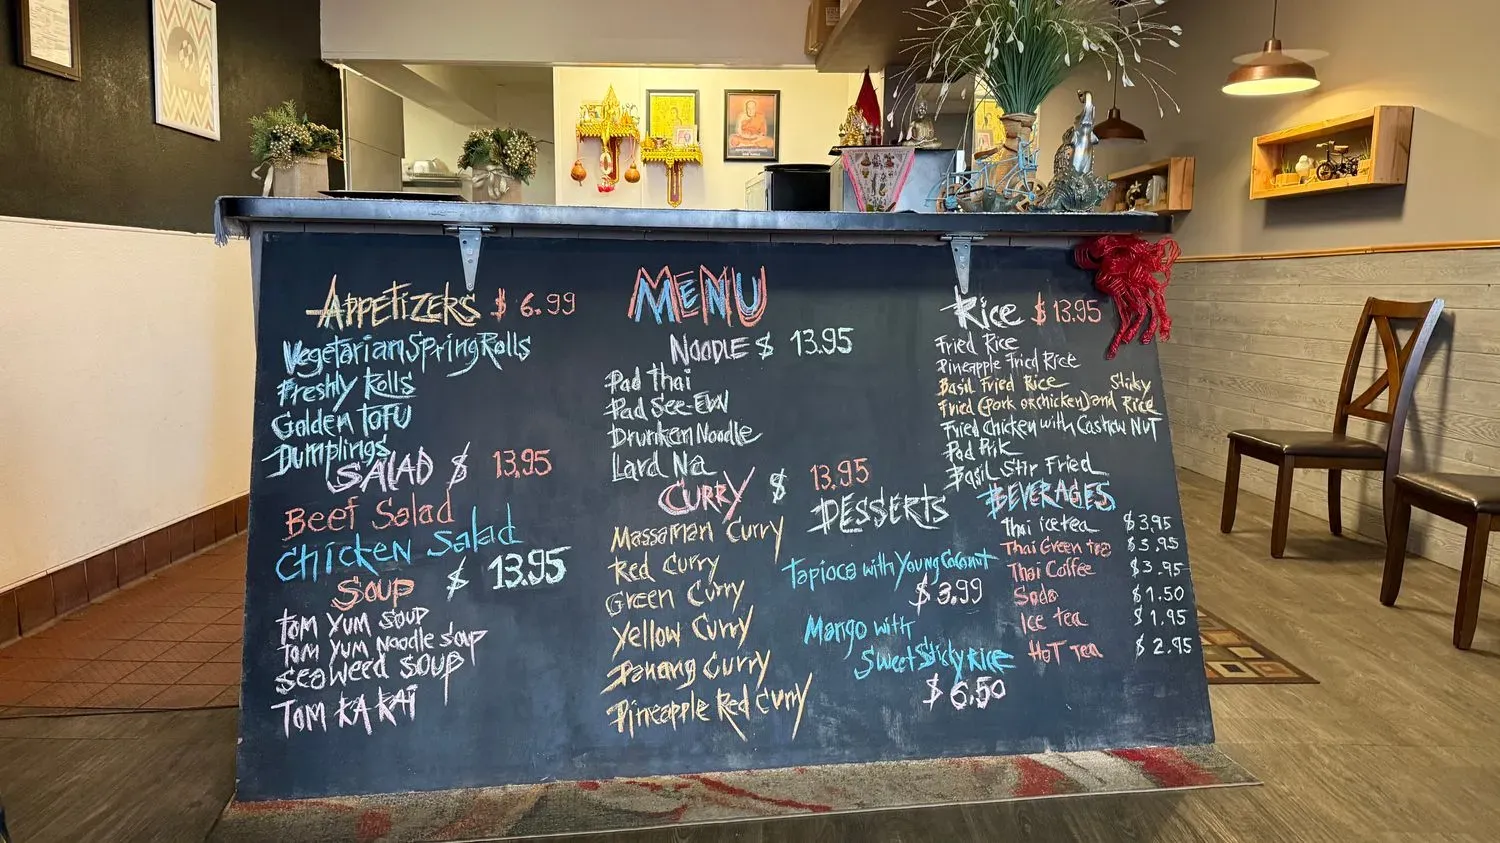 MENU
APPETIZERS $ 6.99
Vegetarian Spring Rolls
Freshly Rolls
Golden TOFU
Dumplings
SALAD $ 13.95
Beef Salad
Chicken Salad
SOUP $ 13.95
TOM YUM SOUP
TOM YUM Noodle SOUP
Seaweed SOUP
TOM KA KAI
NOODLE $ 13.95
Pad Thai
Pad See-EW
Drunken Noodle
Lard Na
CURRY $ 13.95
Massaman Curry
Red Curry
Green Curry
Yellow Curry
Panang Curry
Pineapple Red Curry
DESSERTS
Tapioca with Young Coconut
$3.99
Mango with
Sweet Sticky Rice
$6.50
Rice $ 13.95
Fried Rice
Pineapple Fried Rice
Basil Fried Rice
Fried (Pork or chicken) and Sticky Rice
Fried Chicken with Cashew NUT
Pad Prik
Basil Stir Fried
BEVERAGES
Thai ice tea $3.95
Thai Green tea $3.95
Thai Coffee $3.95
Soda $1.50
Ice tea $1.95
HOT Tea $2.95